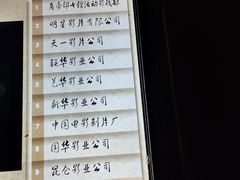 1 商务印书馆活动影戏部
明星影片有限公司
3 天一影片公司
4 联华影业公司
5 艺华影业公司
6 新华影业公司
7 中国电影制片厂
8 国华影业公司
9 昆仑影业公司